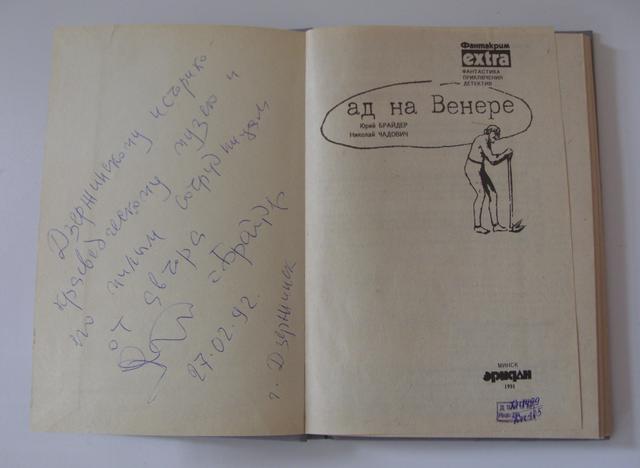 Дзержинскому историко-
краеведческому музею и
его милым сотрудницам
от автора
Ю. Брайдер
27.02.92.
г. Дзержинск
Фантакрим
extra
ФАНТАСТИКА
ПРИКЛЮЧЕНИЯ
ДЕТЕКТИВ
ад на Венере
Юрий БРАЙДЕР
Николай ЧАДОВИЧ
МИНСК
эридан
1991